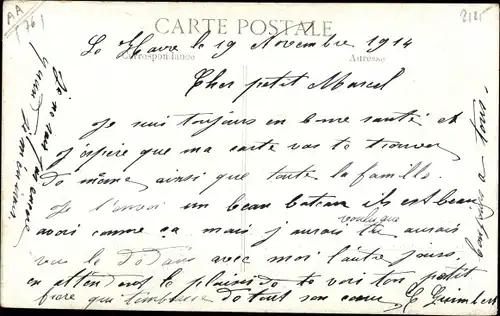 AA
(76)
2121
CARTE POSTALE
Correspondance
Adresse
Le Havre le 19 Novembre 1914
Cher petit Marcel
Je suis toujours en bonne santé et
j'espère que ma carte vas te trouver
de même ainsi que toute la famille.
Je t'envoi un beau bateau il est beau
avoir comme ça mais j'aurais voulu que tu aurais
vue le dedans avec moi l'autre jours.
en attendent le plaisir de te voir ton petit
frère qui t'embrasse de tout son cœur
a tous